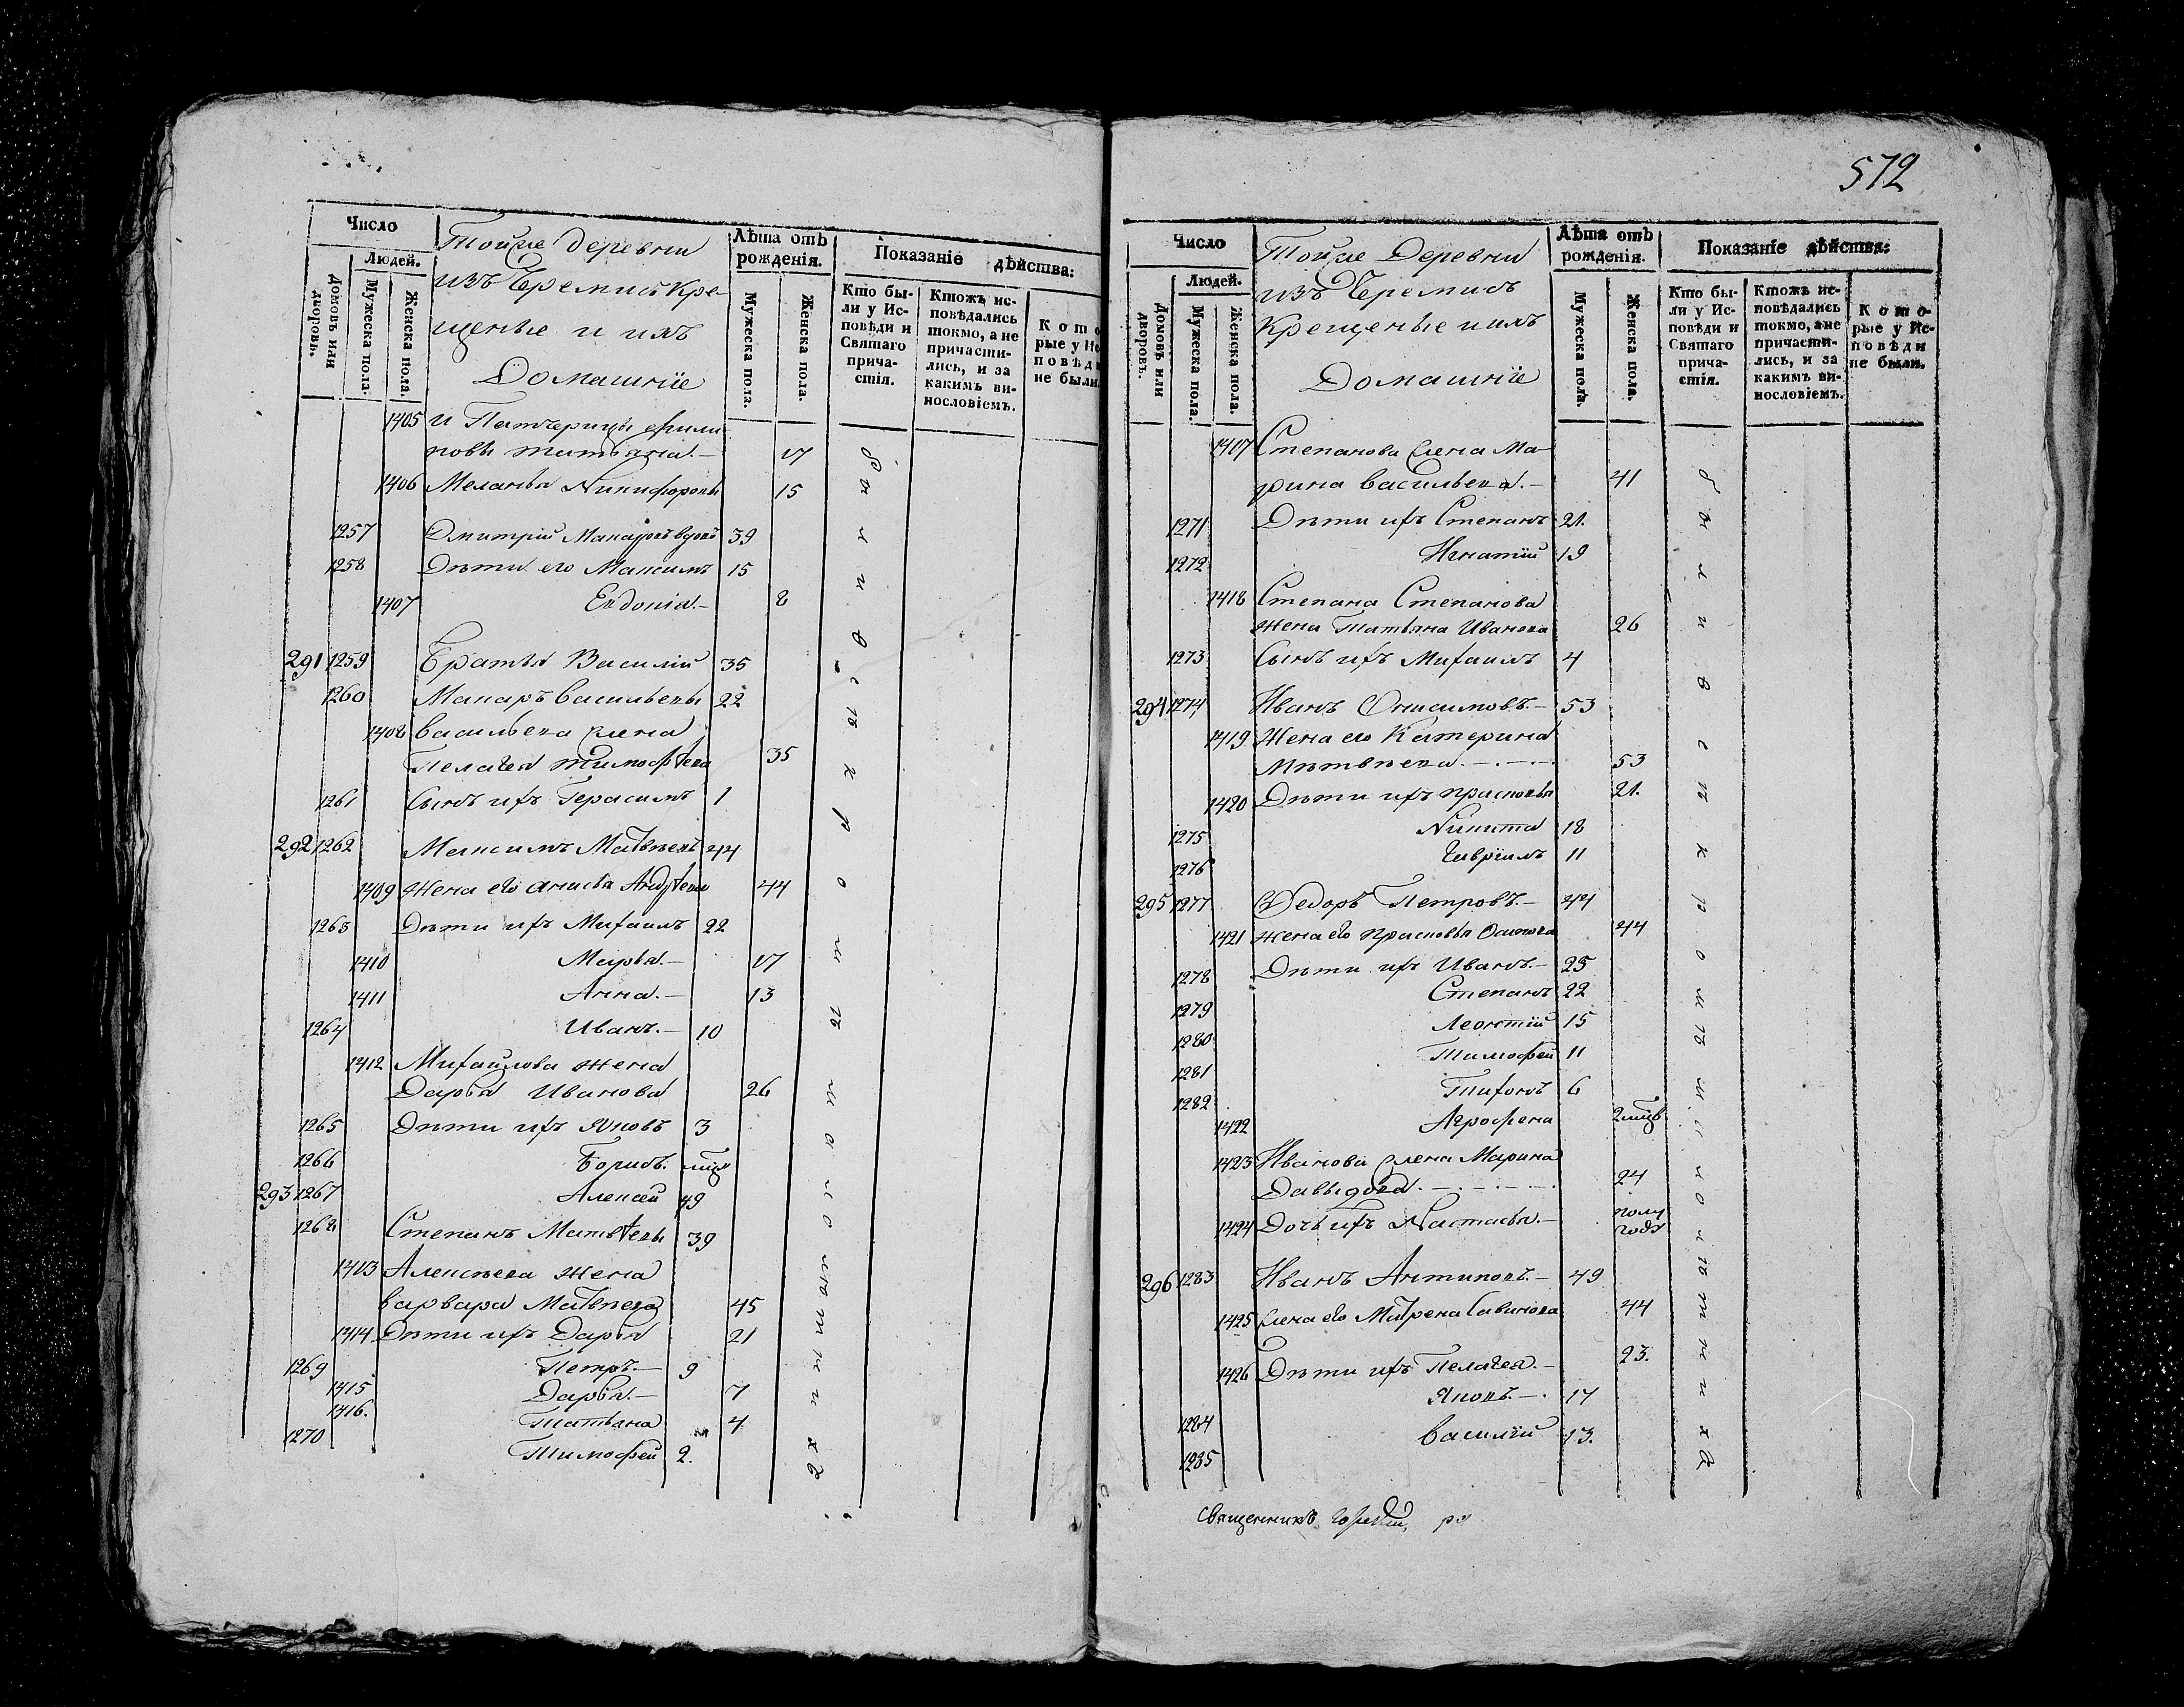 Число
Людей.
Домовъ или дворовъ.
Мужеска пола.
Женска пола.
Тойже деревни
изъ Черемисъ Кре-
щеные и ихъ
Домашніе
Лѣта отъ рожденія.
Мужеска пола.
Женска пола.
Показаніе дѣйства:
Кто бы-
ли у Ис-
повѣди и
Святаго
прича-
стія.
Ктожъ ис-
повѣдались
токмо, а не
причасти-
лись, и за
какимъ ви-
нословіемъ.
Кото
рые у Ис
повѣд
не были.
1405 и Патчерицы Фили-
повы татьяна.— 17
1406 Меланья Никифоровы 15
1257 Дмитрій Макаровъ вдовъ 39
1258 Дѣти его Максимъ 15
1407 Евдокіа.— 8
291 1259 Братья Василій 35
1260 Макаръ Васильевы 22
1408 Васильева жена
Пелагея Тимофѣева 35
1261 Сынъ ихъ Герасимъ 1
292 1262 Максимъ Матвѣевъ 44
1409 Жена его анисья Андрѣева 44
1263 Дѣти ихъ Михаилъ 22
1410 Марья.— 17
1411 Анна.— 13
1264 Иванъ.— 10
1412 Михайлова жена
Дарья Иванова 26
1265 Дѣти ихъ Яковъ 3
1266 Борисъ.
293 1267 Алексѣй 49
1268 Степанъ Матвѣевы 39
1413 Алексѣева жена
варвара Матвѣева 45
1414 Дѣти ихъ Дарья 21
1269 Петръ.— 9
1415 Дарья.— 7
1416. Татьяна 4
1270 Тимофей 2.
были всѣ кромѣ малолѣтнихъ
572
Число
Людей.
Домовъ или дворовъ.
Мужеска пола.
Женска пола.
Тойже Деревни
изъ Черемисъ
Крещеные и ихъ
Домашніе
Лѣта отъ рожденія.
Мужеска пола.
Женска пола.
Показаніе дѣйства:
Кто бы-
ли у Ис-
повѣди и
Святаго
прича-
стія.
Ктожъ ис-
повѣдались
токмо, а не
причасти-
лись, и за
какимъ ви-
нословіемъ.
Кото-
рые у Ис-
повѣди
не были.
1417 Степанова жена Ма-
рина Васильева.— 41
1271 Дѣти ихъ Степанъ 21.
1272 Игнатій 19
1418 Степана Степанова
жена Татьяна Иванова 26
1273 Сынъ ихъ Михаилъ 4
294 1274 Иванъ Онисимовъ.— 53
1419 Жена его Катерина
Матвѣева.—.—.— 53
1420 Дѣти ихъ прасковья 21.
1275 Никита 18
1276 Гаврiилъ 11
295 1277 Ѳедоръ Петровъ.— 44
1421 жена его прасковья Осипова 44
1278 Дѣти ихъ Иванъ.— 25
1279 Степанъ 22
1280 Леонтій 15
1281 Тимофей 11
1282 Тихонъ 6
1422 Агрофена
1423 Иванова жена Марина
Давыдова.—.—.—.—. 24
1424 Дочь ихъ Настасья.— полу года
296 1283 Иванъ Антиповъ.— 49
1425 жена его Матрена Савинова 44
1426 Дѣти ихъ Пелагея.— 23.
1284 Яковъ.—. 17
1285 Василій 13.
были всѣ кромѣ малолѣтнихъ
Священникъ